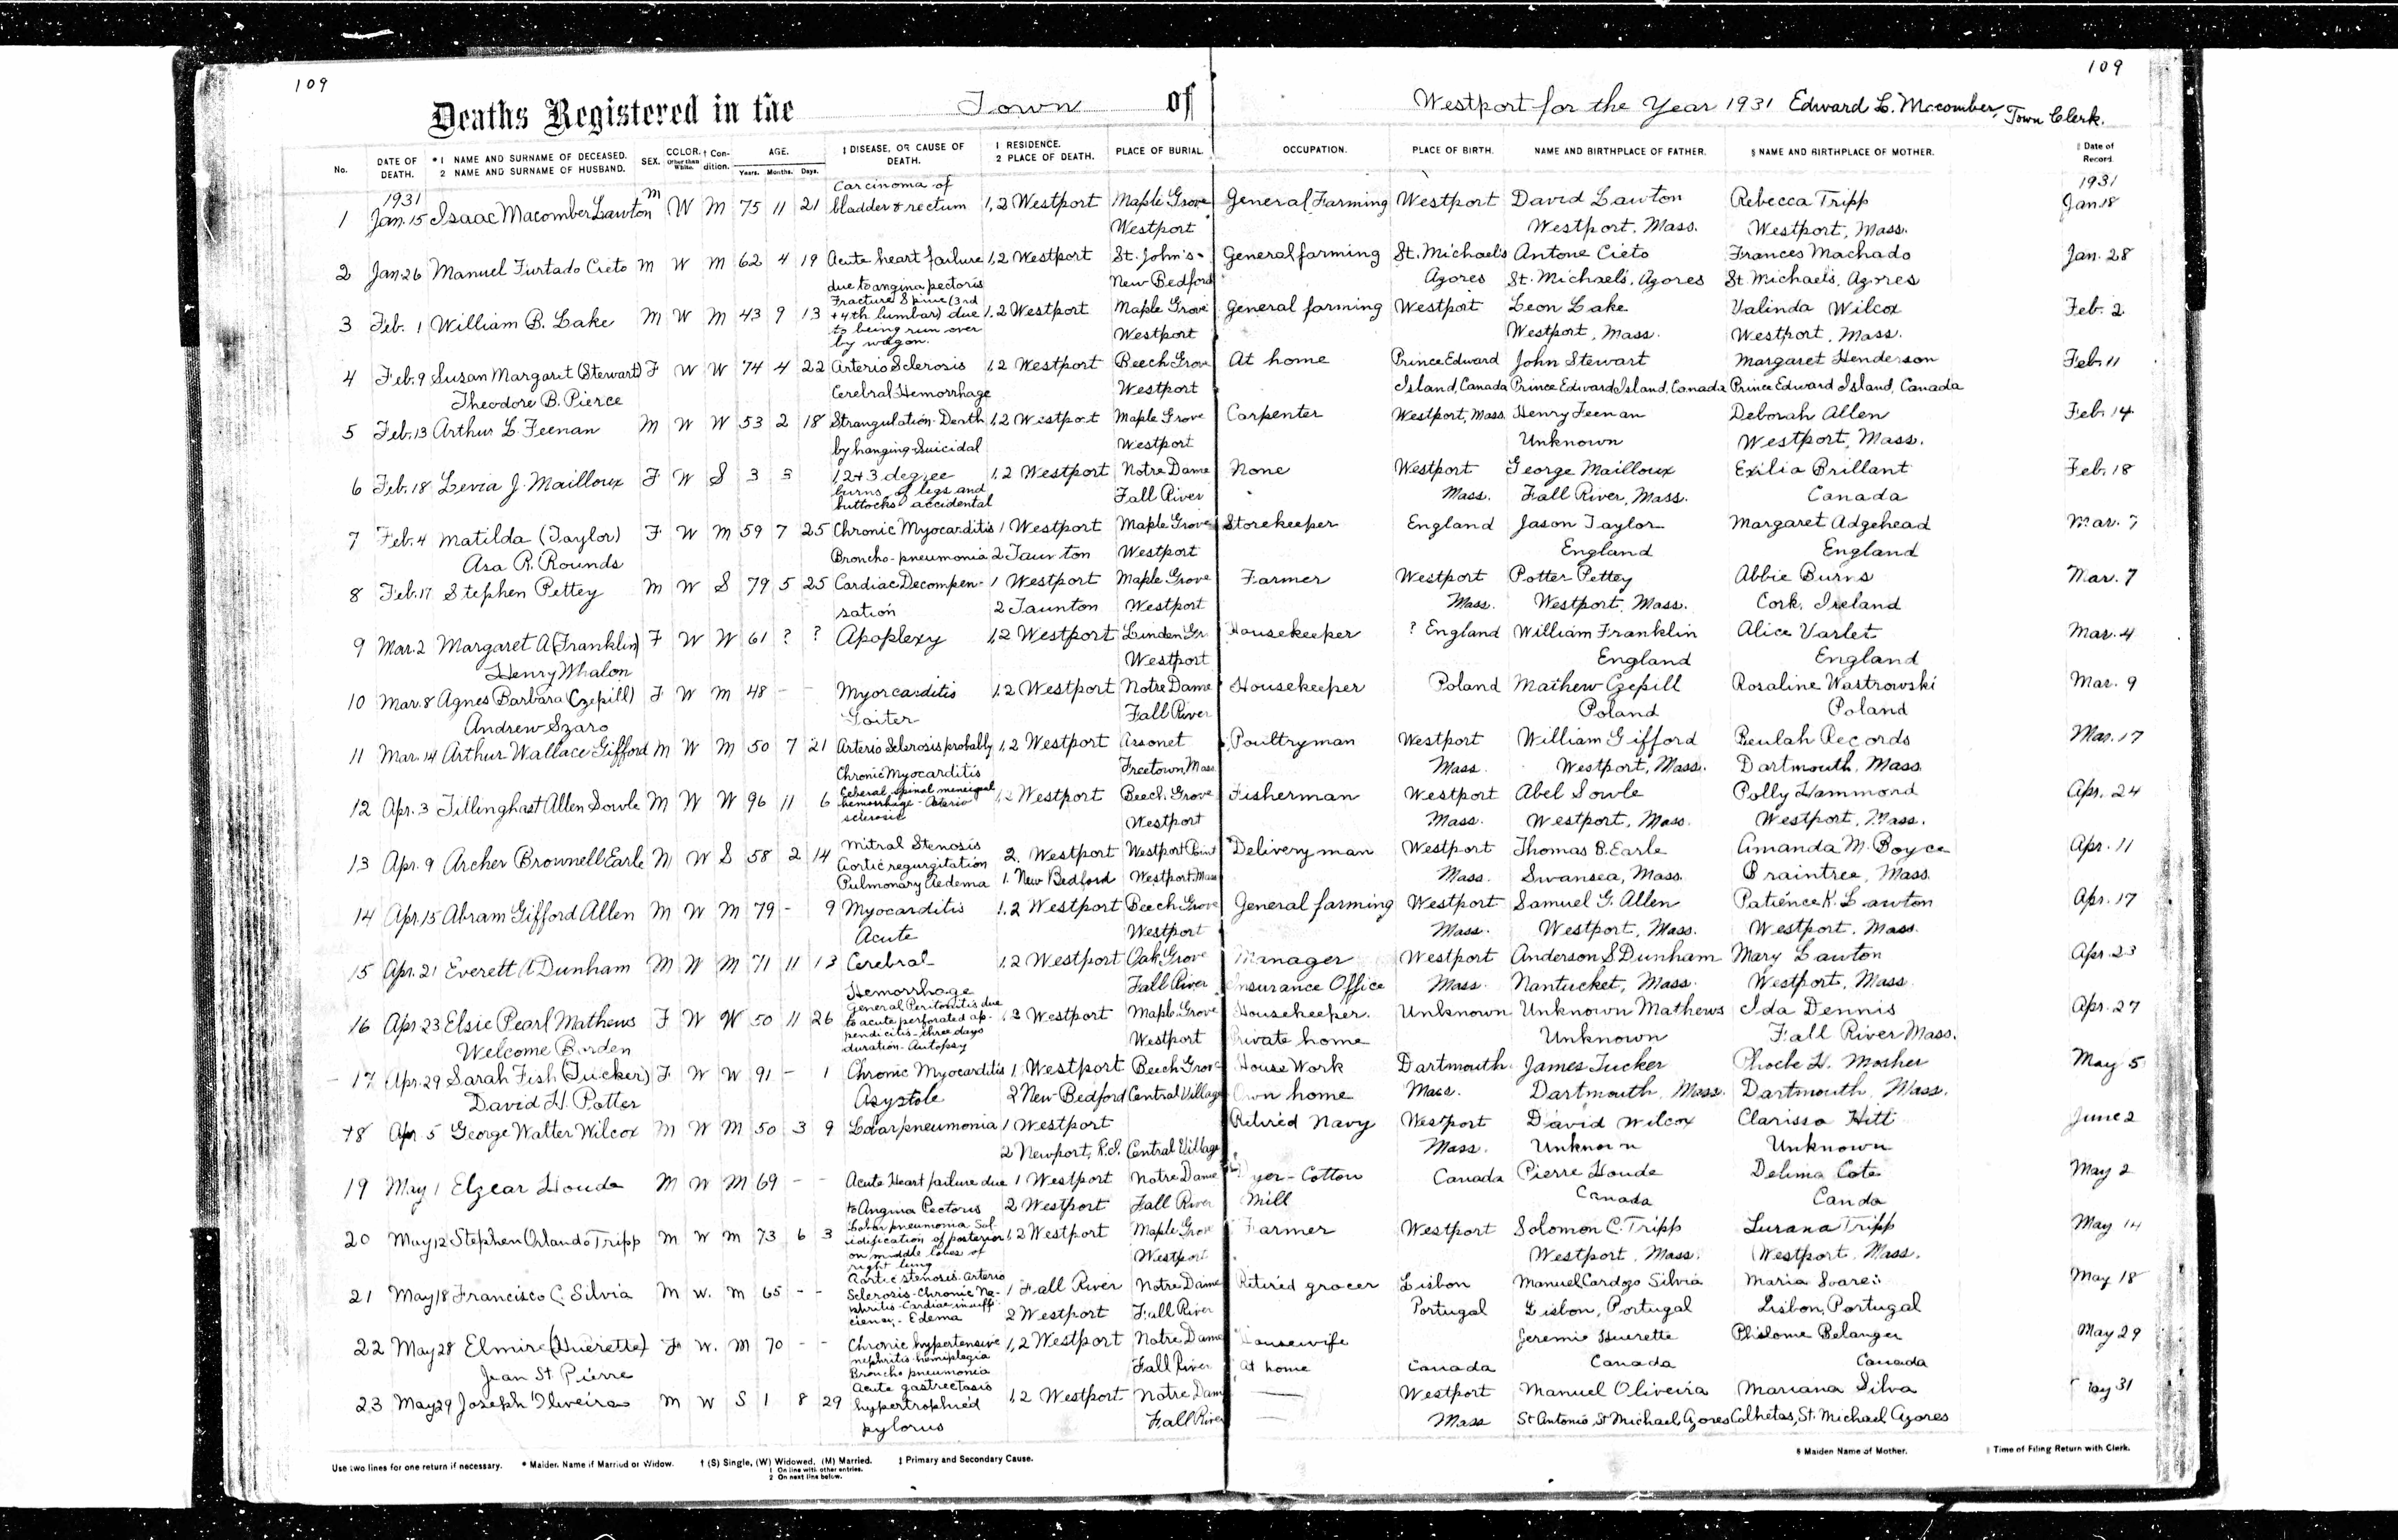 109
109
Deaths Registered in the Town of Westport for the Year 1931 Edward L. Macomber, Town Clerk.
No. DATE OF DEATH. *1 NAME AND SURNAME OF DECEASED. 2 NAME AND SURNAME OF HUSBAND. SEX. COLOR. Other than White. † Condition. AGE. Years. Months. Days. ‡ DISEASE, OR CAUSE OF DEATH. 1 RESIDENCE. 2 PLACE OF DEATH. PLACE OF BURIAL. OCCUPATION. PLACE OF BIRTH. NAME AND BIRTHPLACE OF FATHER. § NAME AND BIRTHPLACE OF MOTHER. || Date of Record.
1931 Carcinoma of 1931
1 Jan. 15 Isaac Macomber Lawton M W M 75 11 21 bladder & rectum 1,2 Westport Maple Grove General Farming Westport David Lawton Rebecca Tripp Jan 18
Westport Westport, Mass. Westport, Mass.
2 Jan 26 Manuel Furtado Cieto M W M 62 4 19 Acute heart failure 1,2 Westport St. John's General farming St. Michael's Antone Cieto Frances Machado Jan. 28
due to angina pectoris New Bedford Azores St. Michael's, Azores St. Michael's, Azores
3 Feb. 1 William B. Lake M W M 43 9 13 Fracture Spine (3rd + 4th lumbar) due 1,2 Westport Maple Grove General farming Westport Leon Lake Valinda Wilcox Feb. 2
to being run over by wagon. Westport Westport, Mass. Westport, Mass.
4 Feb. 9 Susan Margaret (Stewart) F W W 74 4 22 Arterio Sclerosis 1,2 Westport Beech Grove At home Prince Edward John Stewart Margaret Henderson Feb 11
Theodore B. Pierce Cerebral Hemorrhage Westport Island, Canada Prince Edward Island, Canada Prince Edward Island, Canada
5 Feb. 13 Arthur L. Feenan M W W 53 2 18 Strangulation Death 1,2 Westport Maple Grove Carpenter Westport, Mass. Henry Feenan Deborah Allen Feb. 14
by hanging-Suicidal Westport Unknown Westport, Mass.
6 Feb. 18 Levia J. Mailloux F W S 3 3 1,2+3 degree 1,2 Westport Notre Dame None Westport George Mailloux Exilia Brillant Feb. 18
burns of legs and buttocks accidental Fall River Mass. Fall River, Mass. Canada
7 Feb. 4 Matilda (Taylor) F W M 59 7 25 Chronic Myocarditis 1 Westport Maple Grove Storekeeper England Jason Taylor Margaret Adgehead Mar. 7
Asa R. Rounds Broncho-pneumonia 2 Taunton Westport England England
8 Feb. 17 Stephen Pettey M W S 79 5 25 Cardiac Decompen- 1 Westport Maple Grove Farmer Westport Potter Pettey Abbie Burns Mar. 7
sation 2 Taunton Westport Mass. Westport, Mass. Cork, Ireland
9 Mar. 2 Margaret A (Franklin) F W W 61 ? ? Apoplexy 1,2 Westport Linden Gr. Housekeeper ? England William Franklin Alice Varlet Mar. 4
Henry Whalon Westport England England
10 Mar. 8 Agnes Barbara (Czepill) F W M 48 - - Myorcarditis 1,2 Westport Notre Dame Housekeeper Poland Mathew Czepill Rosaline Wastrowski Mar. 9
Andrew Szaro Goiter Fall River Poland Poland
11 Mar. 14 Arthur Wallace Gifford M W M 50 7 21 Arterio Sclerosis probably 1,2 Westport Assonet Poultryman Westport William Gifford Beulah Records Mar. 17
Chronic Myocarditis Freetown Mass Mass. Westport, Mass. Dartmouth, Mass.
12 Apr. 3 Tillinghast Allen Sowle M W W 96 11 6 Ceberal, spinal menicgeal hemorrhage - Arterio sclerosis 1,2 Westport Beech Grove Fisherman Westport Abel Sowle Polly Hammond Apr. 24
Westport Mass. Westport, Mass. Westport, Mass.
13 Apr. 9 Archer Brownell Earle M W S 58 2 14 Mitral Stenosis Aortic regurgitation 2. Westport Westport Point Deliveryman Westport Thomas B. Earle Amanda M. Boyce Apr. 11
Pulmonary Aedema 1. New Bedford Westport Mass Mass. Swansea, Mass. Braintree, Mass.
14 Apr. 15 Abram Gifford Allen M W M 79 - 9 Myocarditis 1,2 Westport Beech Grove General farming Westport Samuel G. Allen Patience K. Lawton Apr. 17
Acute Westport Mass. Westport, Mass. Westport, Mass.
15 Apr. 21 Everett A Dunham M W M 71 11 13 Cerebral 1,2 Westport Oak Grove Manager Westport Anderson S Dunham Mary Lawton Apr. 23
Hemorrhage Fall River Insurance Office Mass. Nantucket, Mass. Westport, Mass.
16 Apr 23 Elsie Pearl Mathews F W W 50 11 26 General Peritonitis due to acute perforated ap- 1,2 Westport Maple Grove Housekeeper. Unknown Unknown Mathews Ida Dennis Apr. 27
Welcome Borden pendicitis - three days duration - Autopsy Westport Private home Unknown Fall River Mass.
17 Apr. 29 Sarah Fish (Tucker) F W W 91 - 1 Chronic Myocarditis 1 Westport Beech Grove House Work Dartmouth James Tucker Phoebe H. Mosher May 5
David H. Potter Asystole 2 New Bedford Central Village Own home Mass. Dartmouth, Mass. Dartmouth, Mass.
18 Apr 5 George Walter Wilcox M W M 50 3 9 Lobar pneumonia 1 Westport Retired Navy Westport David Wilcox Clarissa Hitt June 2
2 Newport, R.I. Central Village Mass. Unknown Unknown
19 May 1 Elzear Houde M W M 69 - - Acute Heart failure due 1 Westport Notre Dame Dyer - Cotton Canada Pierre Houde Delima Cote May 2
to Angina Pectoris 2 Westport Fall River Mill Canada Canda
20 May 12 Stephen Orlando Tripp M W M 73 6 3 Lobar pneumonia Sol- idification of posterior 1,2 Westport Maple Grove Farmer Westport Solomon C. Tripp Lurana Tripp May 14
on middle lobes of right lung Westport Westport, Mass. Westport, Mass.
21 May 18 Francisco C. Silvia M W. M 65 - - Aortic stenosis. Arterio Sclerosis - Chronic Ne- 1 Fall River Notre Dame Retired grocer Lisbon Manuel Cardozo Silvia Maria Soares May 18
phritis - Cardiac insuff- ciency - Edema 2 Westport Fall River Portugal Lisbon, Portugal Lisbon, Portugal
22 May 28 Elmire (Huerette) F W. M 70 - - Chronic hypertensive 1,2 Westport Notre Dame Housewife Jeremie Huerette Philome Belanger May 29
Jean St. Pierre nephritis-hemiplegia Broncho pneumonia Fall River At home Canada Canada Canada
23 May 29 Joseph Oliveira M W S 1 8 29 Acute gastrectasis hypertrophied 1,2 Westport Notre Dame Westport Manuel Oliveira Mariana Silva May 31
pylorus Fall River Mass St Antonio, St Michael, Azores Calhetas, St. Michael Azores
Use two lines for one return if necessary. * Maiden Name if Married or Widow. † (S) Single, (W) Widowed, (M) Married. ‡ Primary and Secondary Cause. § Maiden Name of Mother. || Time of Filing Return with Clerk.
1 On line with other entries.
2 On next line below.